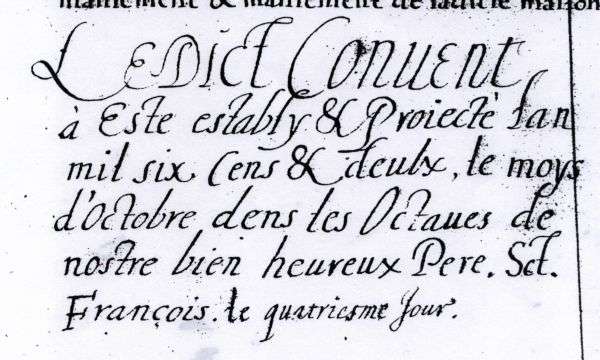 maniement & maniement de ladicte maison
LEDICT CONUENT
à Este estably & Proiectè lan
mil six Cens & deulx, le moys
d'Octobre dens les Octaues de
nostre bien heureux Pere. Sct.
François. le quatriesme Jour.